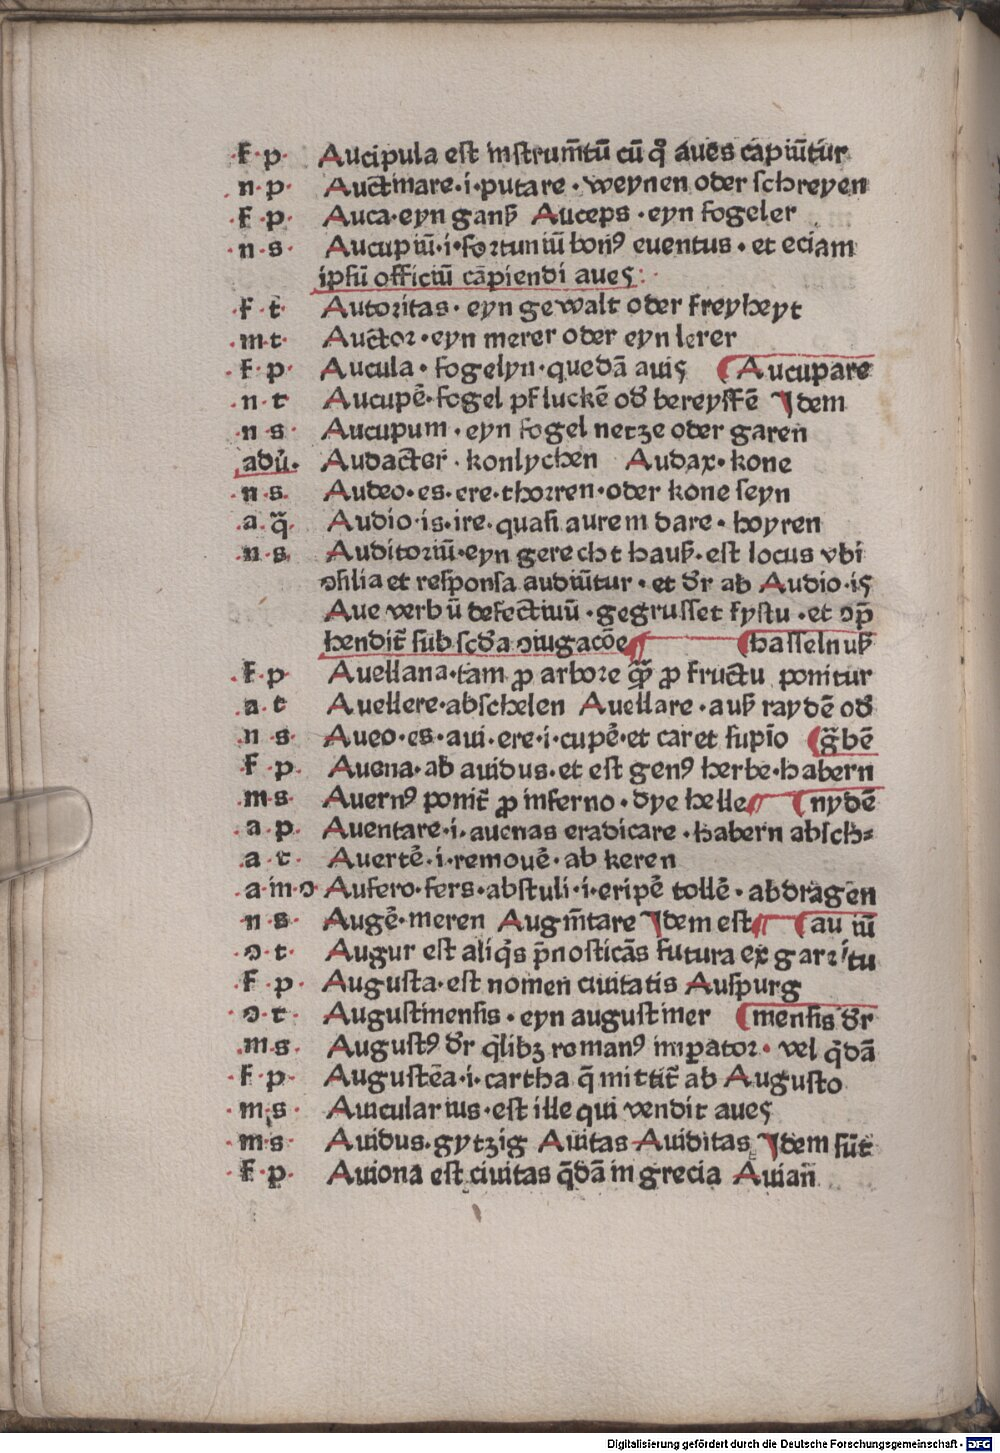 ·f·p· Aucipula est instrum̄tū cū q̊ aues capiūtur
·n·p· Auctīnare·i·putare·weynen oder schreyen
·f·p· Auca·eyn ganß Auceps·eyn fogeler
·n·s· Aucupiū·i·fortuniū bonꝰ euentus·et eciam
ipsū officiū cāpiendi aues:·
·f·t· Autoritas·eyn gewalt oder freyheyt
·m·t· Auctor·eyn merer oder eyn lerer
·f·p· Aucula·fogelyn·quedā auis Aucupare
·n·t Aucupē·fogel pfluckē od̄ bereyffē Idem
·n s· Aucupum·eyn fogel netze oder garen
adū· Audacter̄·konlychen Audax·kone
·n·s· Audeo·es·ere·thorren·oder kone seyn
·a·q̄· Audio·is·ire·quasi aurem dare·hoyren
·n·s· Auditoriū·eyn gerecht hauß·est locus vbi
ↄsilia et responsa audiūtur·et dr̄ ab Audio·is
Aue verbū defectiuū·gegrusset systu·et ↄp̄
hendit̄ sub scd̄a ↄiugacōe hasselnuß
·f·p· Auellana·tam ꝓ arbore q̄ꝫ ꝓ fructu ponitur
·a·t Auellere·abschelen Auellare·auß raydē od̄
·n·s· Aueo·es·aui·ere·i·cupē·et caret supīo g̃bē
·f·p· Auena·ab auidus·et est genꝰ herbe·habern
·m·s· Auernꝰ ponit̄ ꝓ inferno·dye helle nydē
·a·p· Auentare·i·auenas eradicare·habern absch⸗
·a·t· Auertē·i·remouē·ab keren
·a·m·ↄ Aufero·fers·abstuli·i·eripē tollē·abdragen
·n·s· Augē·meren Augm̄tare Idem est auiū
·ↄ·t· Augur est aliq̇s p̄nosticās futura ex garritu
·f·p· Augusta·est nomen ciuitatis Auspurg
·ↄ·t· Augustinensis·eyn augustiner mensis dr̄
·m·s· Augustꝰ dr̄ q̇libꝫ romanꝰ imꝑator·vel q̇dā
·f·p· Augustēa·i·cartha q̄ mittit̄ ab Augusto
·m·s· Auicularius·est ille qui vendit aues
·m·s· Auidus·gytzig Auitas Auiditas Idem sūt
·f·p· Auiona est ciuitas q̄dā in grecia Auian̄
Digitalisierung gefördert durch die Deutsche Forschungsgemeinschaft · DFG